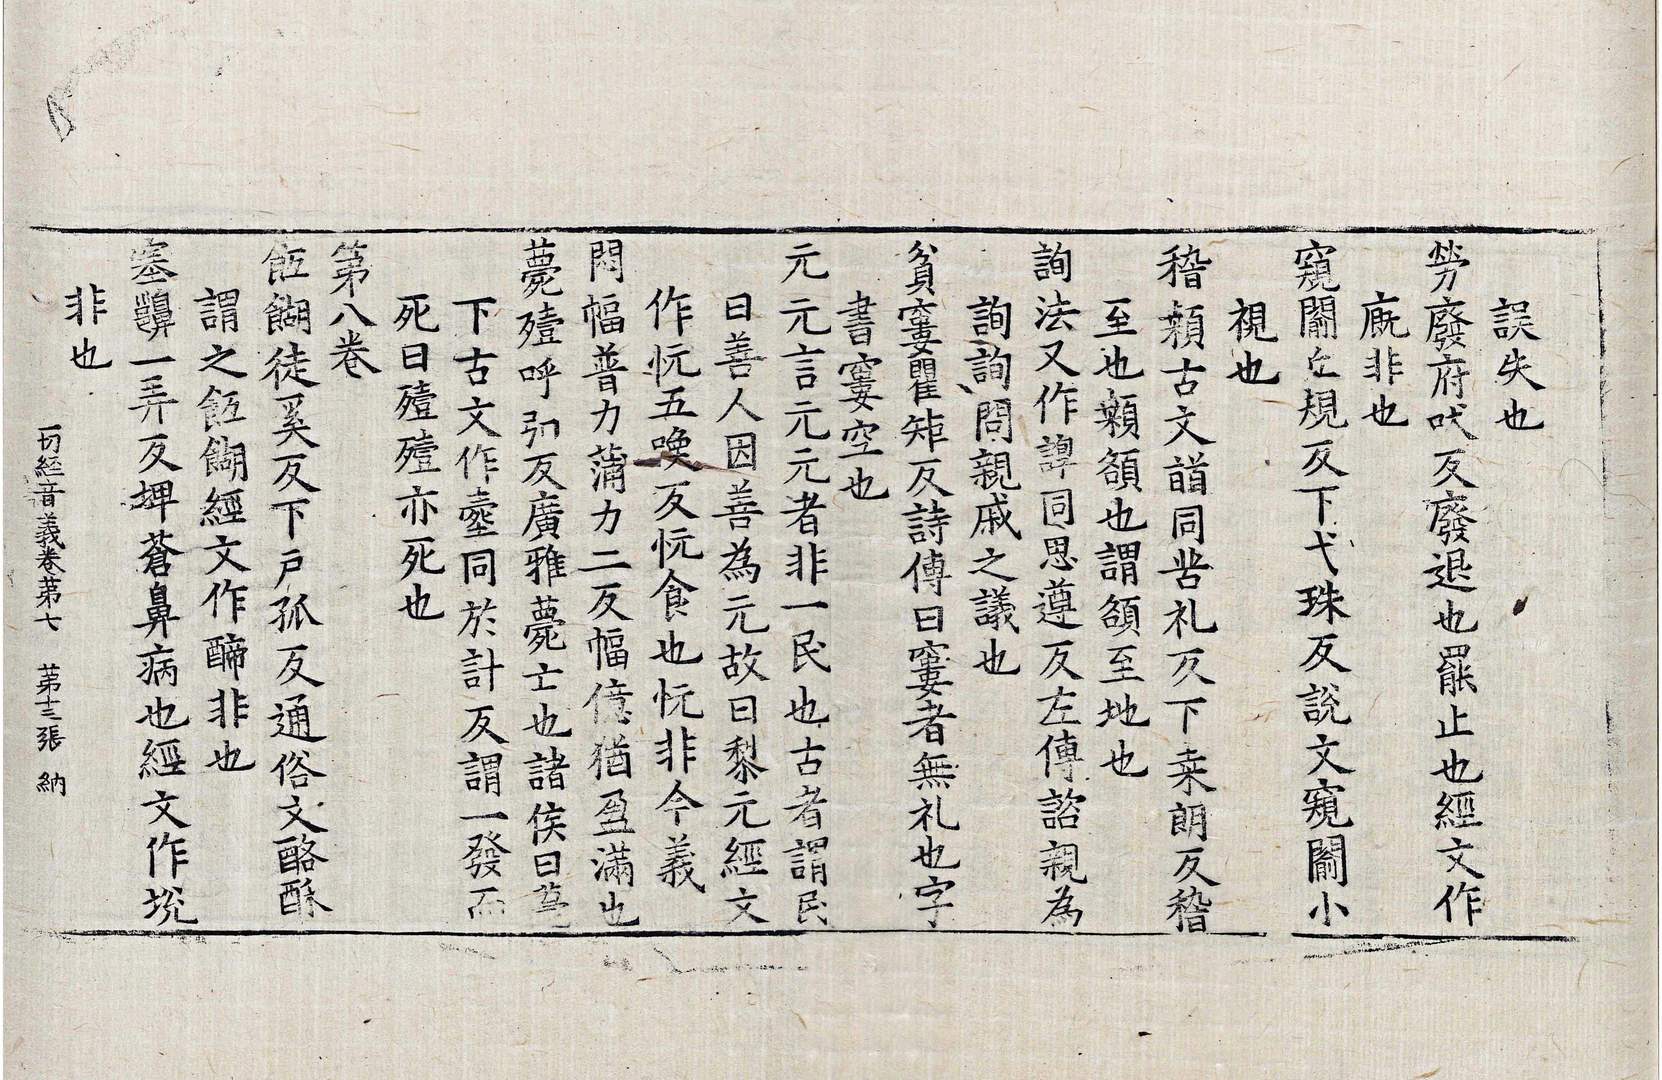 誤失也
勞廢府吠反廢退也罷止也經文作
庬非也
窺闚丘規反下弋珠反說文窺闚小
視也
稽顙古文䭫同苦礼反下桒朗反稽
至也顙頟也謂頟至地也
詢法又作諄同思遵反左傳諮親為
詢詢問親戚之議也
貧寠瞿矩反詩傳曰寠者無礼也字
書寠空也
元元言元元者非一民也古者謂民
曰善人因善為元故曰黎元經文
作忨五喚反忨食也忨非今義
悶愊普力蒲力二反愊億猶盈滿也
薨殪呼弘反廣雅薨亡也諸侯曰薨
下古文作㙪同於計反謂一發而
死曰殪殪亦死也
第八卷
䬫餬徒奚反下戶孤反通俗文酪酥
謂之䬫餬經文作醍非也
塞齆一弄反埤蒼鼻病也經文作㙂
非也
一切經音義卷第七 第十三張 納